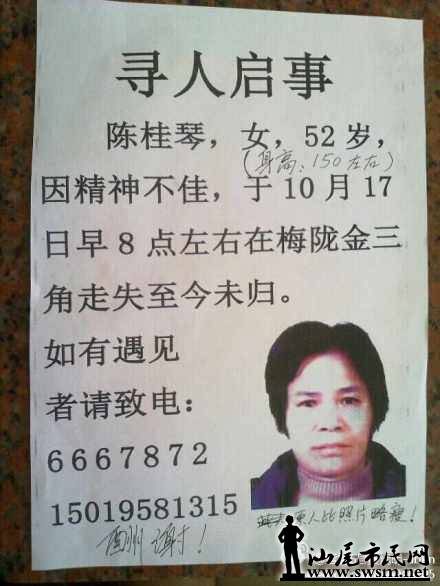 寻人启事
陈桂琴，女，52岁，
（身高：150左右）
因精神不佳，于10月17
日早8点左右在梅陇金三
角走失至今未归。
如有遇见
者请致电：
6667872
15019581315
本人比照片略瘦！
酬谢！
汕尾市民网
www.swsm.net